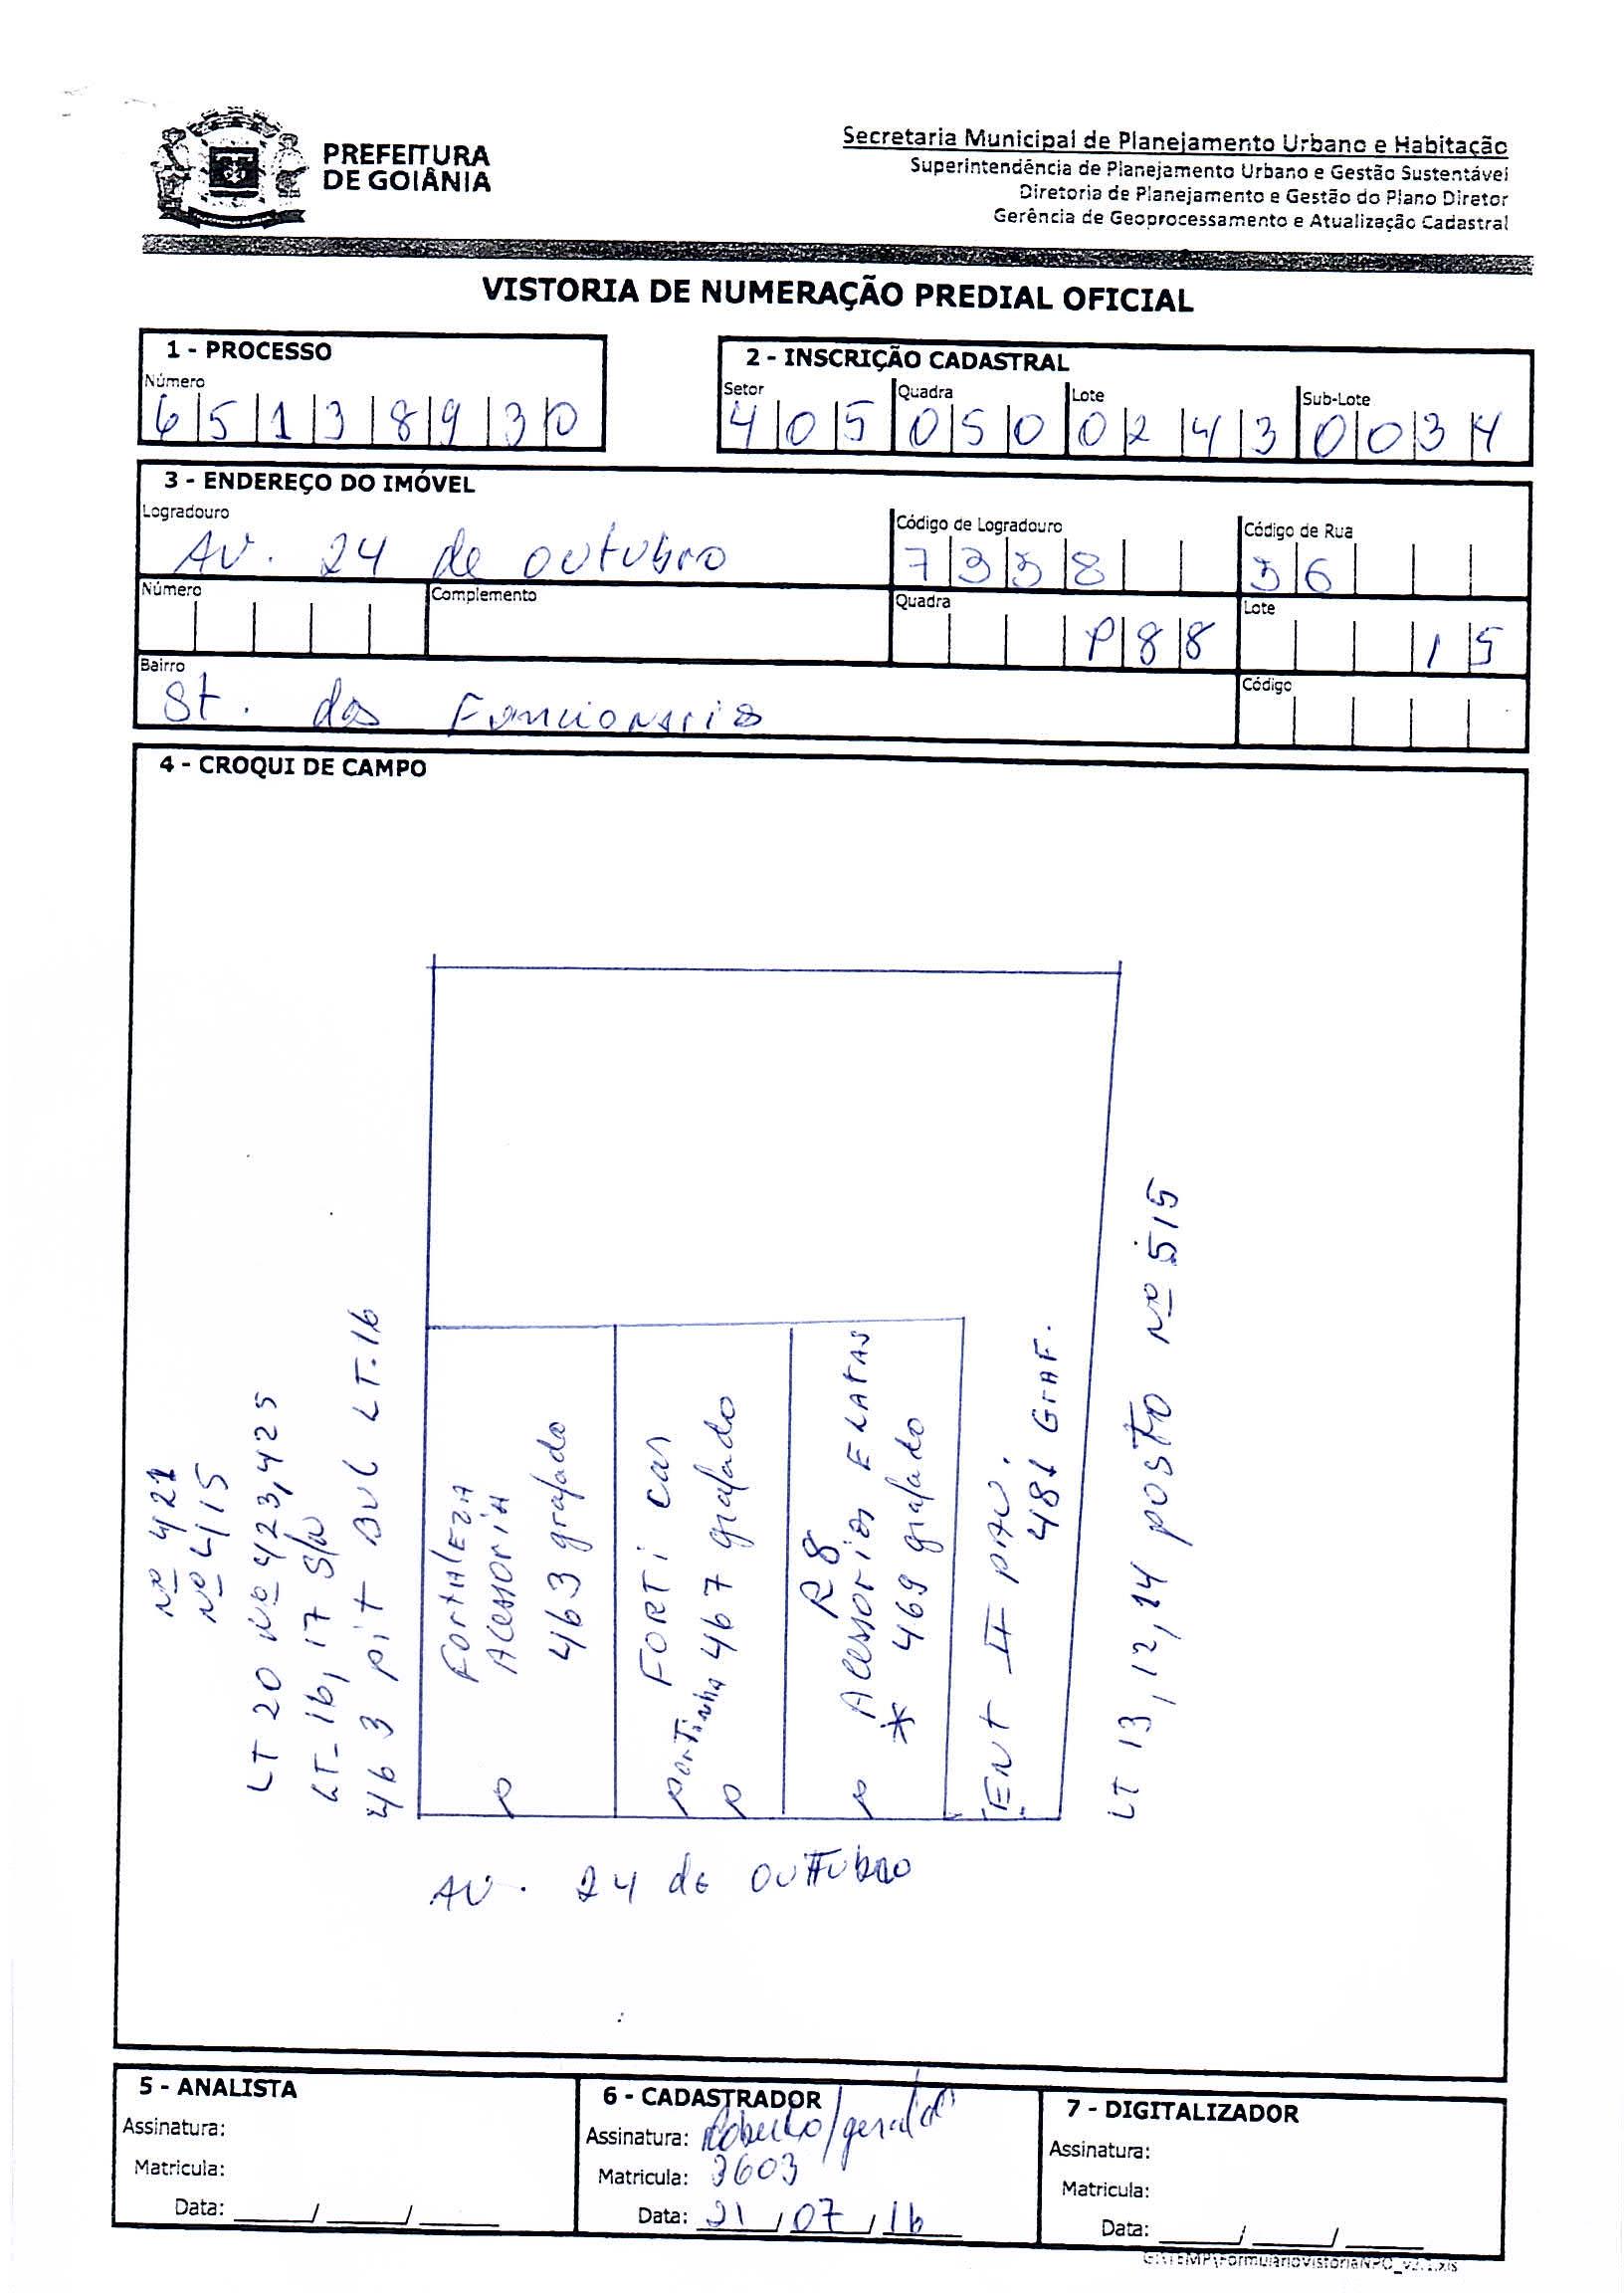 PREFEITURA
DE GOIÂNIA
Secretaria Municipal de Planejamento Urbano e Habitação
Superintendência de Planejamento Urbano e Gestão Sustentável
Diretoria de Planejamento e Gestão do Plano Diretor
Gerência de Geoprocessamento e Atualização Cadastral
VISTORIA DE NUMERAÇÃO PREDIAL OFICIAL
1 - PROCESSO
Número
6 5 1 3 8 9 3 0
2 - INSCRIÇÃO CADASTRAL
Setor Quadra Lote Sub-Lote
4 0 5 0 5 0 0 2 4 3 0 0 3 4
3 - ENDEREÇO DO IMÓVEL
Logradouro Código de Logradouro Código de Rua
AV. 24 de outubro 7 3 3 8 36
Número Complemento Quadra Lote
P 8 8 1 5
Bairro Código
St. dos Funcionarios
4 - CROQUI DE CAMPO
Nº 421
Nº 415
LT 20 Nº 423, 425
LT-16, 17 S/N
463 pit BUL LT.16
FortALEZA
Acessoria
463 grafado
FORTI car
portinha 467 grafado
R8
Acessorios
* 469 grafado
ENT II PAV.
481 GrAF.
LT 13, 12, 14 posto nº 515
AV. 24 de outtubro
5 - ANALISTA
Assinatura:
Matricula:
Data: ____/____/____
6 - CADASTRADOR
Assinatura: Roberto/geraldo
Matricula: 3603
Data: 21/07/16
7 - DIGITALIZADOR
Assinatura:
Matricula:
Data: ____/____/____
G:\TEMP\FormularioVistoriaNPO_v2.1.xls